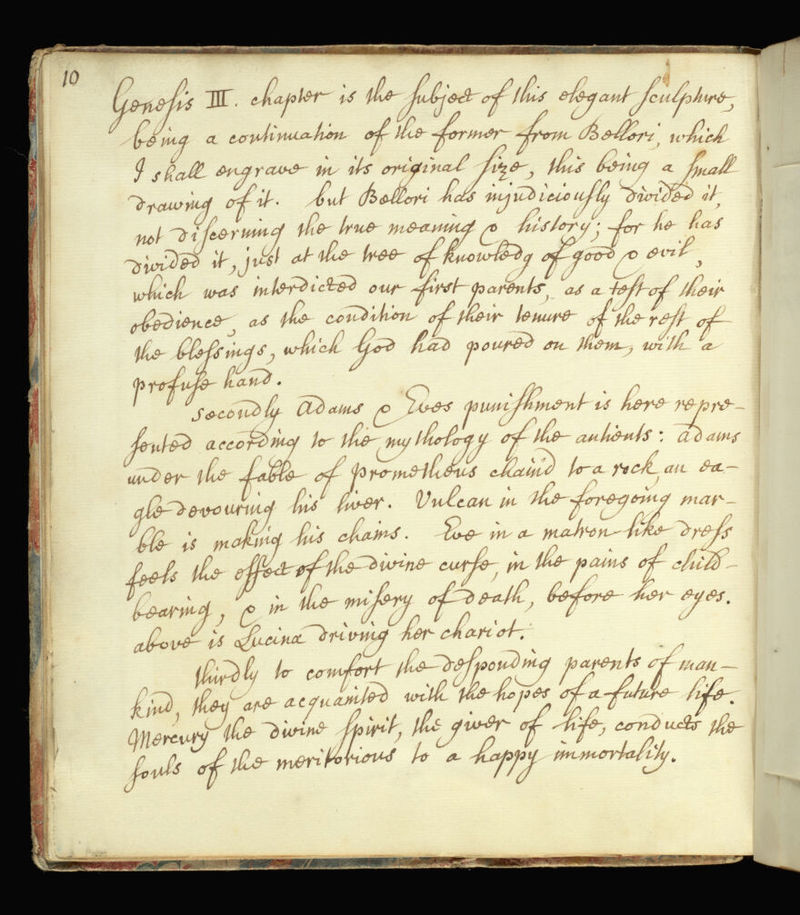 10
Genesis III. chapter is the subject of this elegant sculpture,
being a continuation of the former from Bellori, which
I shall engrave in its original size, this being a small
drawing of it. but Bellori has injudiciously divided it,
not discerning the true meaning & history; for he has
divided it, just at the tree of knowledg of good & evil,
which was interdicted our first parents, as a test of their
obedience, as the condition of their tenure of the rest of
the blessings, which God had poured on them, with a
profuse hand.
secondly Adams & Eves punishment is here repre-
sented according to the mythology of the antients: adams
under the fable of prometheus chain'd to a rock, an ea-
gle devouring his liver. Vulcan in the foregoing mar-
ble is making his chains. Eve in a matron-like dress
feels the effect of the divine curse, in the pains of child-
bearing, & in the misery of death, before her eyes.
above is Lucina driving her chariot.
thirdly to comfort the desponding parents of man-
kind, they are acquainted with the hopes of a future life.
Mercury the divine spirit, the giver of life, conducts the
souls of the meritorious to a happy immortality.